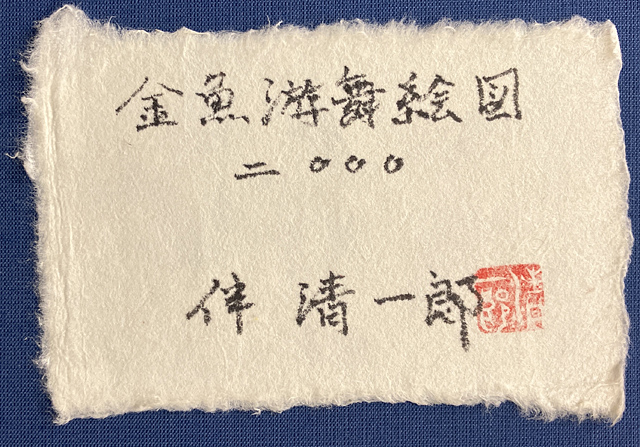 金魚游舞絵図
二〇〇〇
伴 清一郎